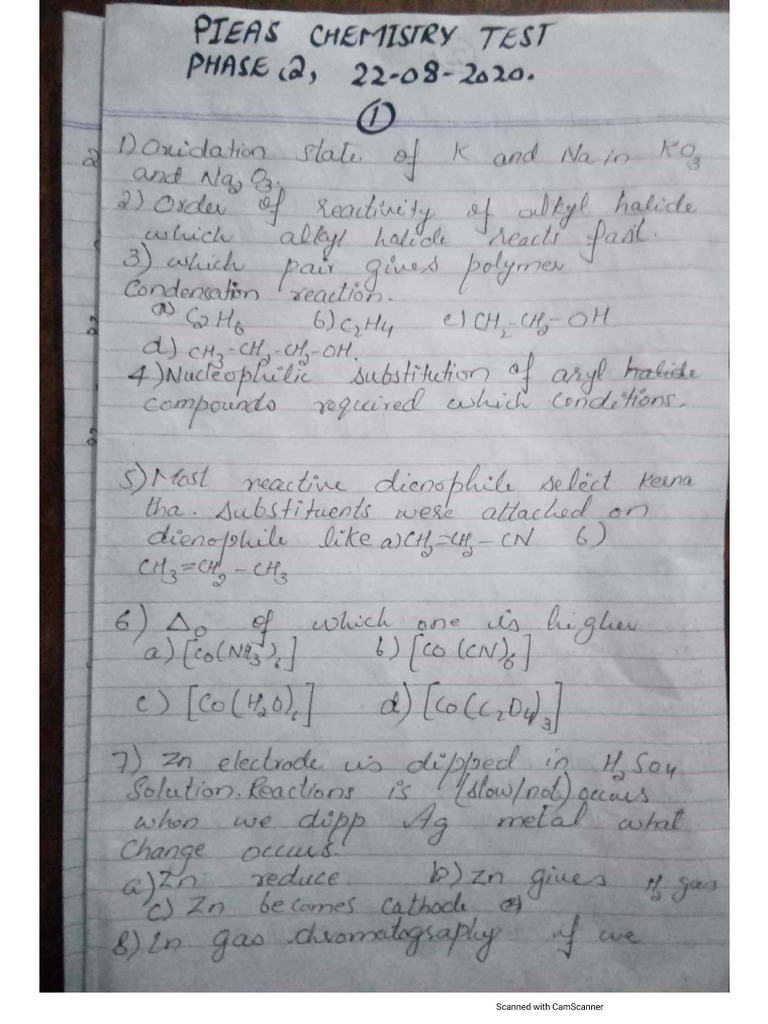 PIEAS CHEMISTRY TEST
PHASE 2, 22-08-2020.
1
1) Oxidation state of K and Na in KO3
and Na2O3.
2) Order of reactivity of alkyl halide
which alkyl halide reacts fast.
3) which pair gives polymer
Condensation reaction.
a) C2H6 b) C2H4 c) CH2-CH2-OH
d) CH3-CH2-CH2-OH.
4) Nucleophilic substitution of aryl halide
compounds required which conditions.
5) Most reactive dienophile select kerna
tha. Substituents were attached on
dienophile like a) CH2=CH2-CN b)
CH3=CH2-CH3
6) Δo of which one is higher
a) [Co(NH3)6] b) [CO(CN)6]
c) [Co(H2O)6] d) [Co(C2O4)3]
7) Zn electrode is dipped in H2SO4
Solution. Reactions is (slow/not) occurs
when we dipp Ag metal what
Change occurs.
a) Zn reduce b) Zn gives H2 gas
c) Zn becomes cathode
8) In gas chromatography if we
Scanned with CamScanner